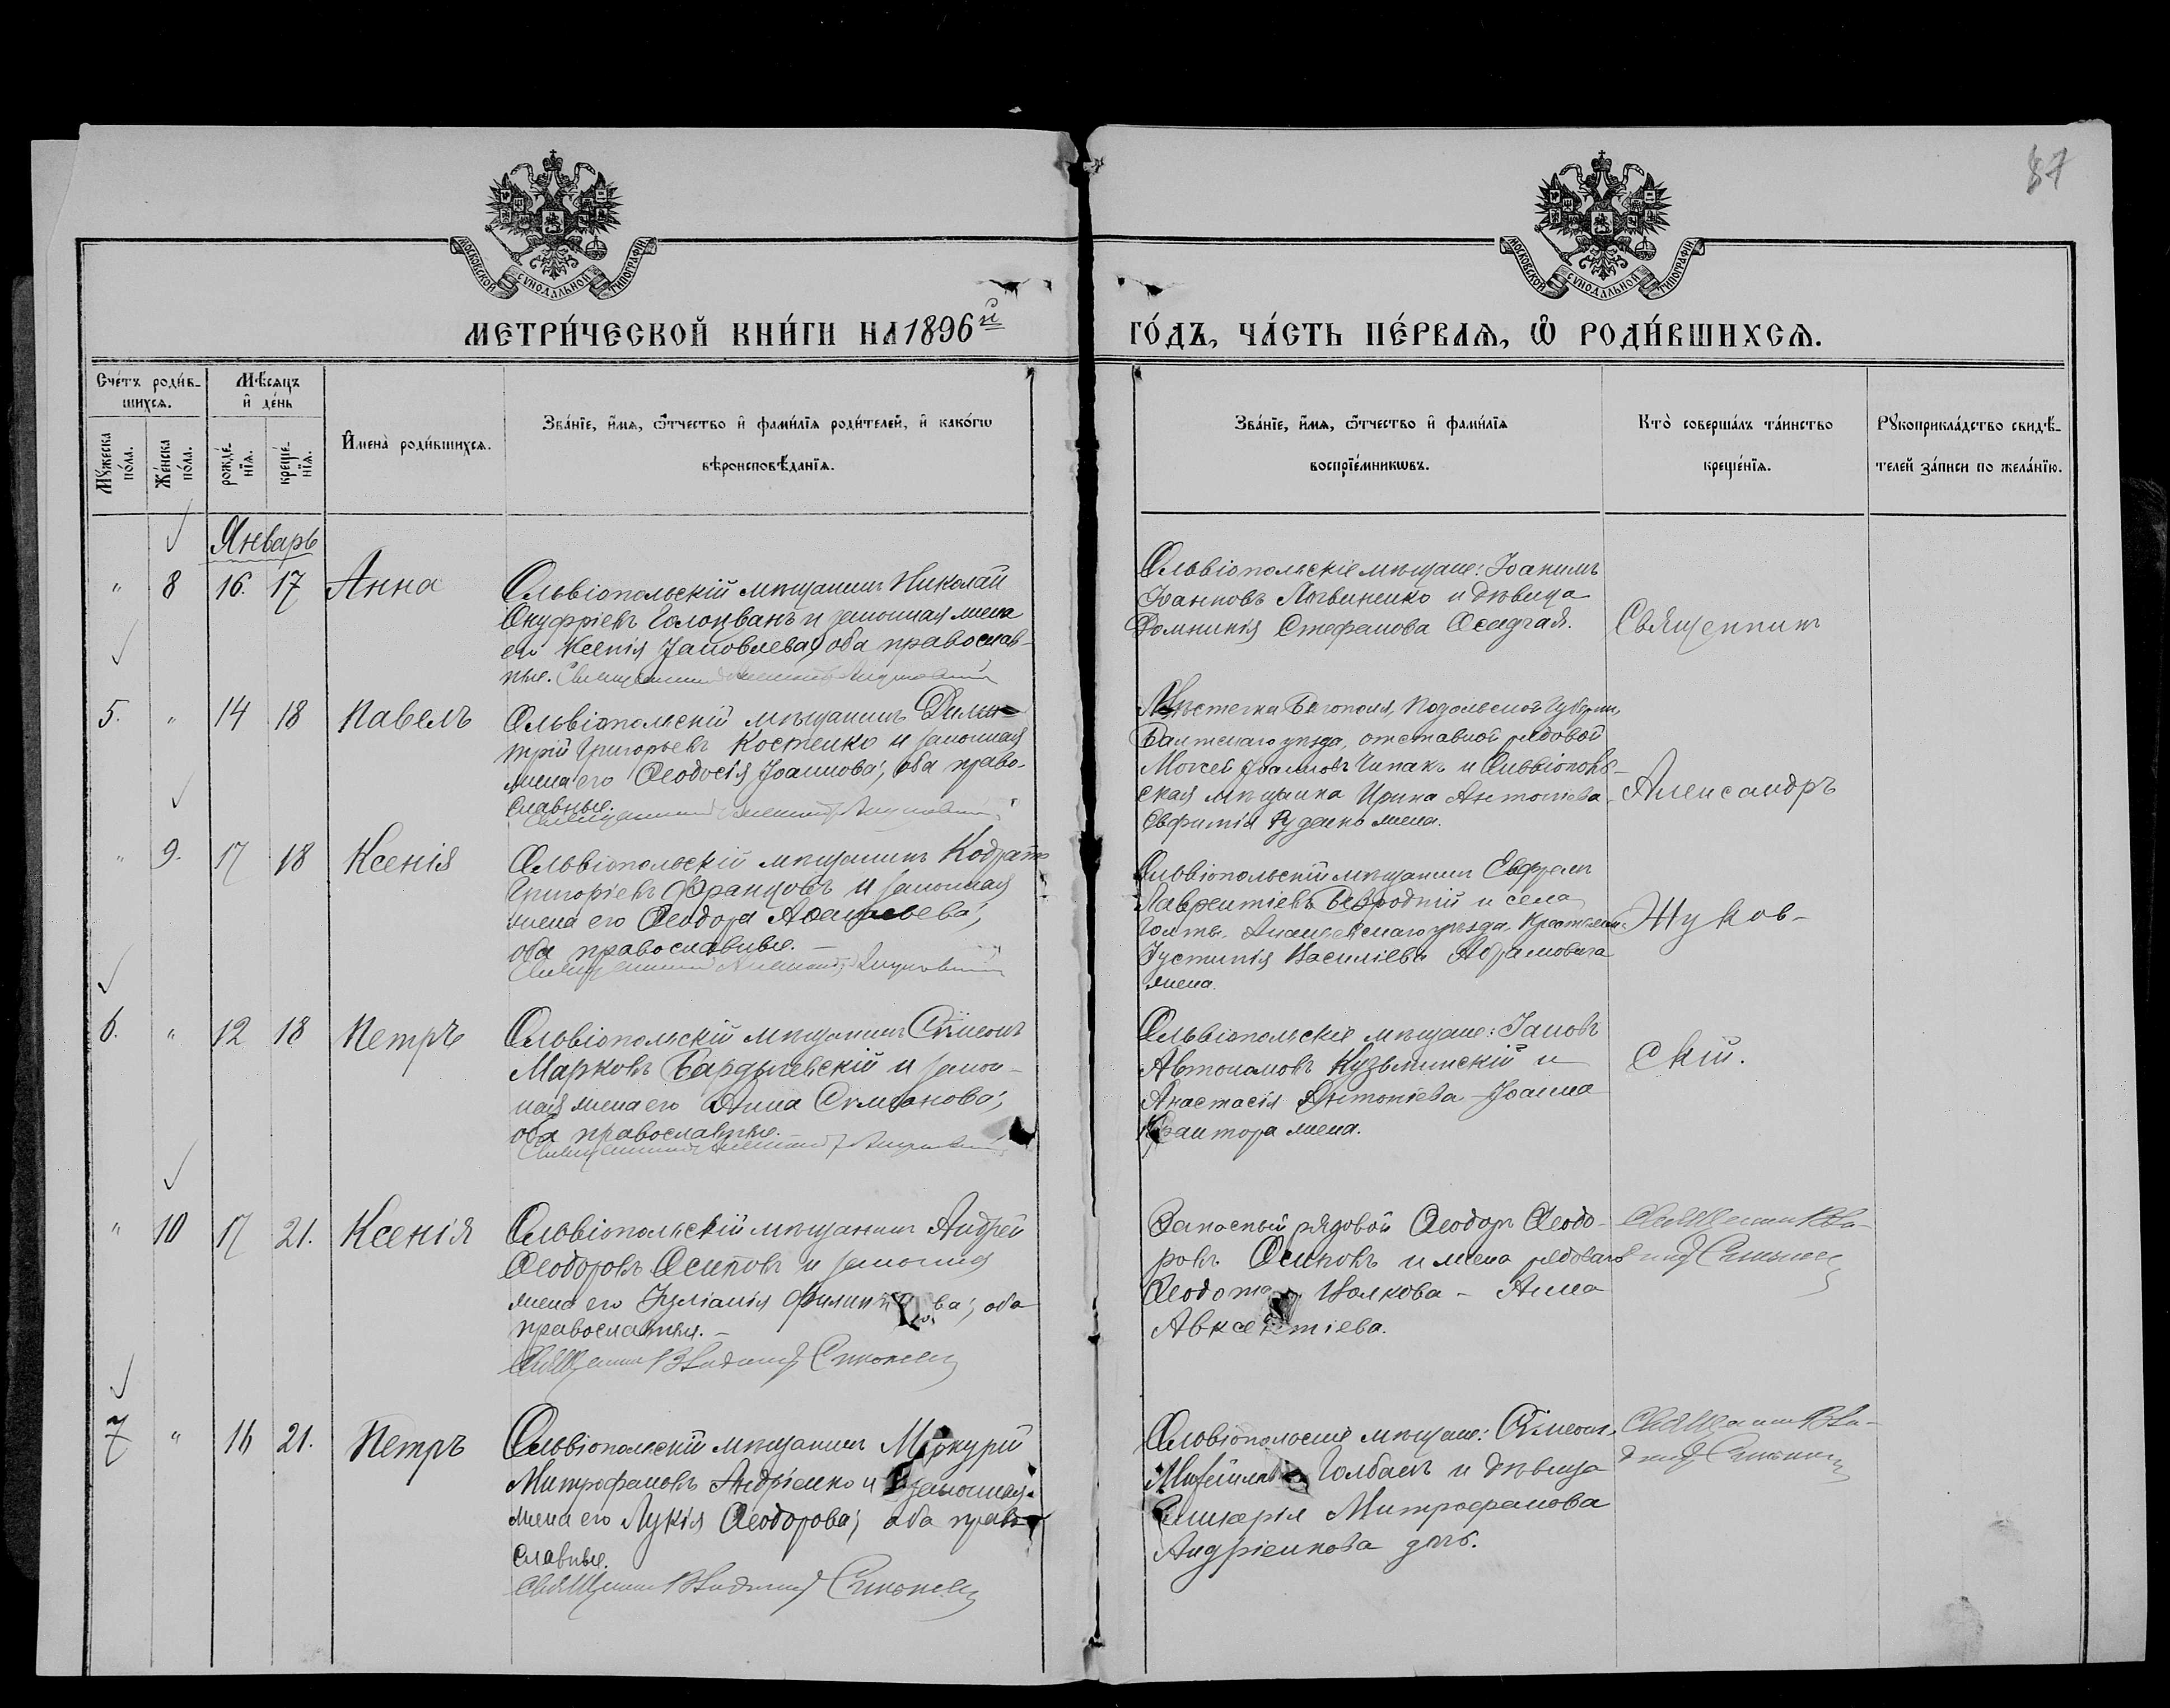 87
МОСКОВСКОЙ СУНОДАЛЬНОЙ ТИПОГРАФІИ
МОСКОВСКОЙ СУНОДАЛЬНОЙ ТИПОГРАФІИ
МЕТРИ́ЧЕСКОЙ КНИ́ГИ НА 1896й ГО́ДЪ, ЧА́СТЬ ПЕ́РВАѦ, Ѡ РОДИ́ВШИХСѦ.
Сче́тъ роди́в-
шихсѧ.
Мꙋ́жеска по́ла.
Же́нска по́ла.
Мѣ́сѧцъ
и҆ де́нь
рожде́-
нїѧ.
креще́-
нїѧ.
И҆мена̀ роди́вшихсѧ.
Зва́нїе, и҆́мѧ, ѻ҆́тчество и҆ фами́лїѧ роди́телей, и҆ како́гѡ
вѣроисповѣ́данїѧ.
Зва́нїе, и҆́мѧ, ѻ҆́тчество и҆ фами́лїѧ
воспрїе́мникѡвъ.
Кто̀ соверша́лъ та́инство
креще́нїѧ.
Рꙋкоприкла́дство свидѣ́-
телей за́писи по жела́нїю.
Январь
" 8 16. 17 Анна
Ольвіопольскій мѣщанинъ Николай
Онуфріевъ Голованъ и законная жена
его Ксенія Іаковлева, оба православ-
ные. Священникъ Александръ Жуковскій
Ольвіопольскіе мѣщане: Іоакимъ
Іоанновъ Литвиненко и дѣвица
Домникія Стефанова Осадчая.
Священникъ
5. " 14 18 Павелъ
Ольвіопольскій мѣщанинъ Дими-
трій Григорьевъ Костенко и законная
жена его Ѳеодосія Іоаннова; оба право-
славные.
Священникъ Александръ Жуковскій
Мѣстечка Богополя, Подольской губерніи,
Балтскаго уѣзда, отставной рядовой
Моисей Іоанновъ Чипакъ и Ольвіополь-
ская мѣщанка Ирина Антоніева
Евфимія Руденко жена.
Александръ
" 9. 17 18 Ксенія
Ольвіопольскій мѣщанинъ Кодратъ
Григоріевъ Францовъ и законная
жена его Ѳеодора Аѳанасьева;
оба православные. —
Священникъ Александръ Жуковскій
Ольвіопольскій мѣщанинъ Ефремъ
Лаврентіевъ Безродній и села
Голты, Ананьевскаго уѣзда, крестьян.
Іустинія Василіева Абрамовича
жена.
Жуков-
6. " 12 18 Петръ
Ольвіопольскій мѣщанинъ Сѵмеонъ
Марковъ Бардычевскій и закон-
ная жена его Анна Сѵмеонова;
оба православные.
Священникъ Александръ Жуковскій
Ольвіопольскіе мѣщане: Іаковъ
Автономовъ Кузьминскій и
Анастасія Антоніева Іоанна
Кантора жена.
скій.
" 10 17 21. Ксенія
Ольвіопольскій мѣщанинъ Андрей
Ѳеодоровъ Осиповъ и законная
жена его Іуліанія Филиппова; оба
православные. —
Священникъ Владимiръ
Запасный рядовой Ѳеодоръ Ѳеодо-
ровъ Осиповъ и жена рядоваго
Ѳеодота Волкова - Анна
Авксентіева.
Священникъ Вла-
диміръ
7 " 16 21. Петръ
Ольвіопольскій мѣщанинъ Меркурій
Митрофановъ Андріенко и законная
жена его Лукія Ѳеодорова; оба право-
славные.
Священникъ Владиміръ
Ольвіопольскіе мѣщане: Сѵмеонъ
Голбанъ и дѣвица
Гликерія Митрофанова
Андріенкова дочь.
Священникъ Вла-
диміръ